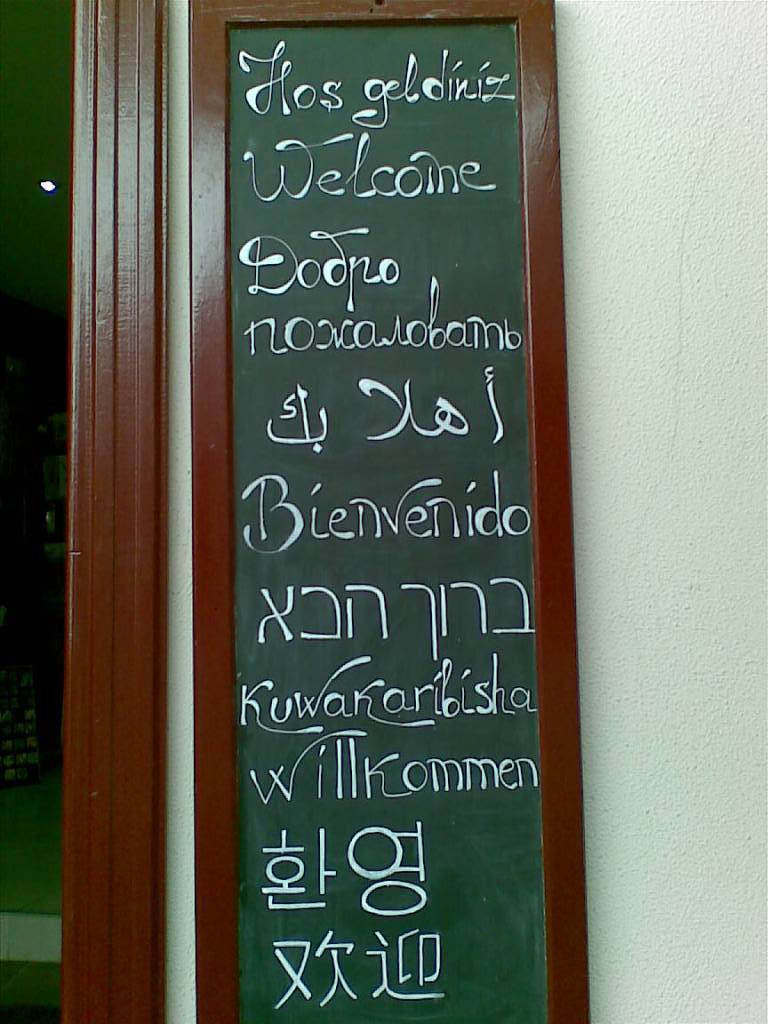 Hoş geldiniz
Welcome
Добро
пожаловать
أهلا بك
Bienvenido
ברוך הבא
Kuwakaribisha
Willkommen
환영
欢迎